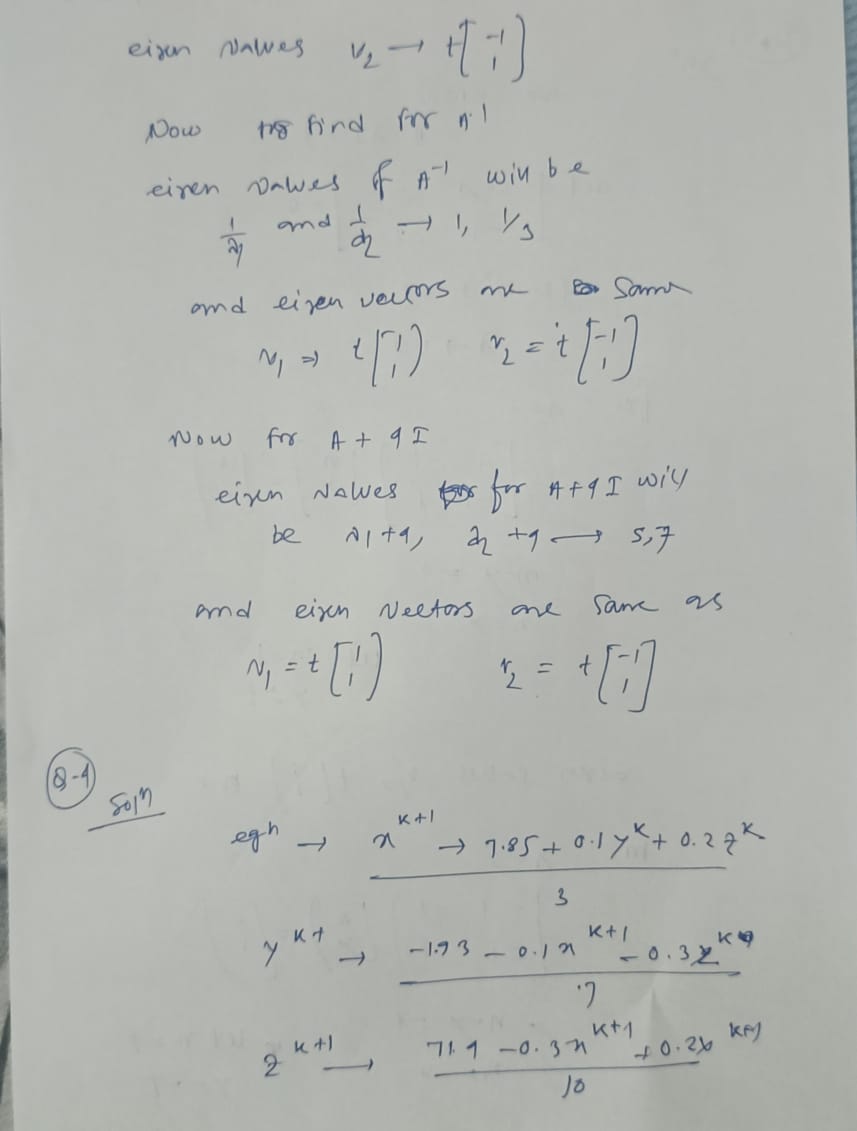 eigen values v₂ → t[-1 1]
Now to find for A⁻¹
eigen values of A⁻¹ will be
1/λ₁ and 1/λ₂ → 1, 1/3
and eigen vectors are same
v₁ ⇒ t[1 1] v₂ = t[-1 1]
Now for A + 4I
eigen values for A+4I will
be λ₁+4, λ₂+4 → 5,7
and eigen vectors are same as
v₁ = t[1 1] v₂ = t[-1 1]
Q-4
Solⁿ
eqn → x^{k+1} → 7.85 + 0.1y^k + 0.2z^k / 3
y^{k+} → -19.3 - 0.1x^{k+1} - 0.3z^k / 7
z^{k+1} → 71.4 - 0.3x^{k+1} + 0.2y^{k+1} / 10